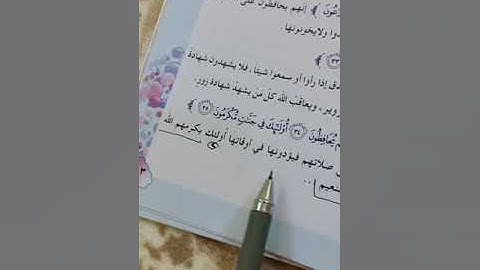 إنهم يحافظون على
ولا يخونونها .
٣٣
إذا رأوا أو سمعوا شيئا ، فلا يشهدون شهادة
زوير ، ويعاقب الله كل من يشهد شهادة زور .
يُحَافِظُونَ ٣٤ أُوْلَٰٓئِكَ فِى جَنَّٰتٍ مُّكْرَمُونَ ٣٥ ﴾
صلاتهم فيؤدونها في أوقاتها أولئك يكرمهم الله
نعيم ..